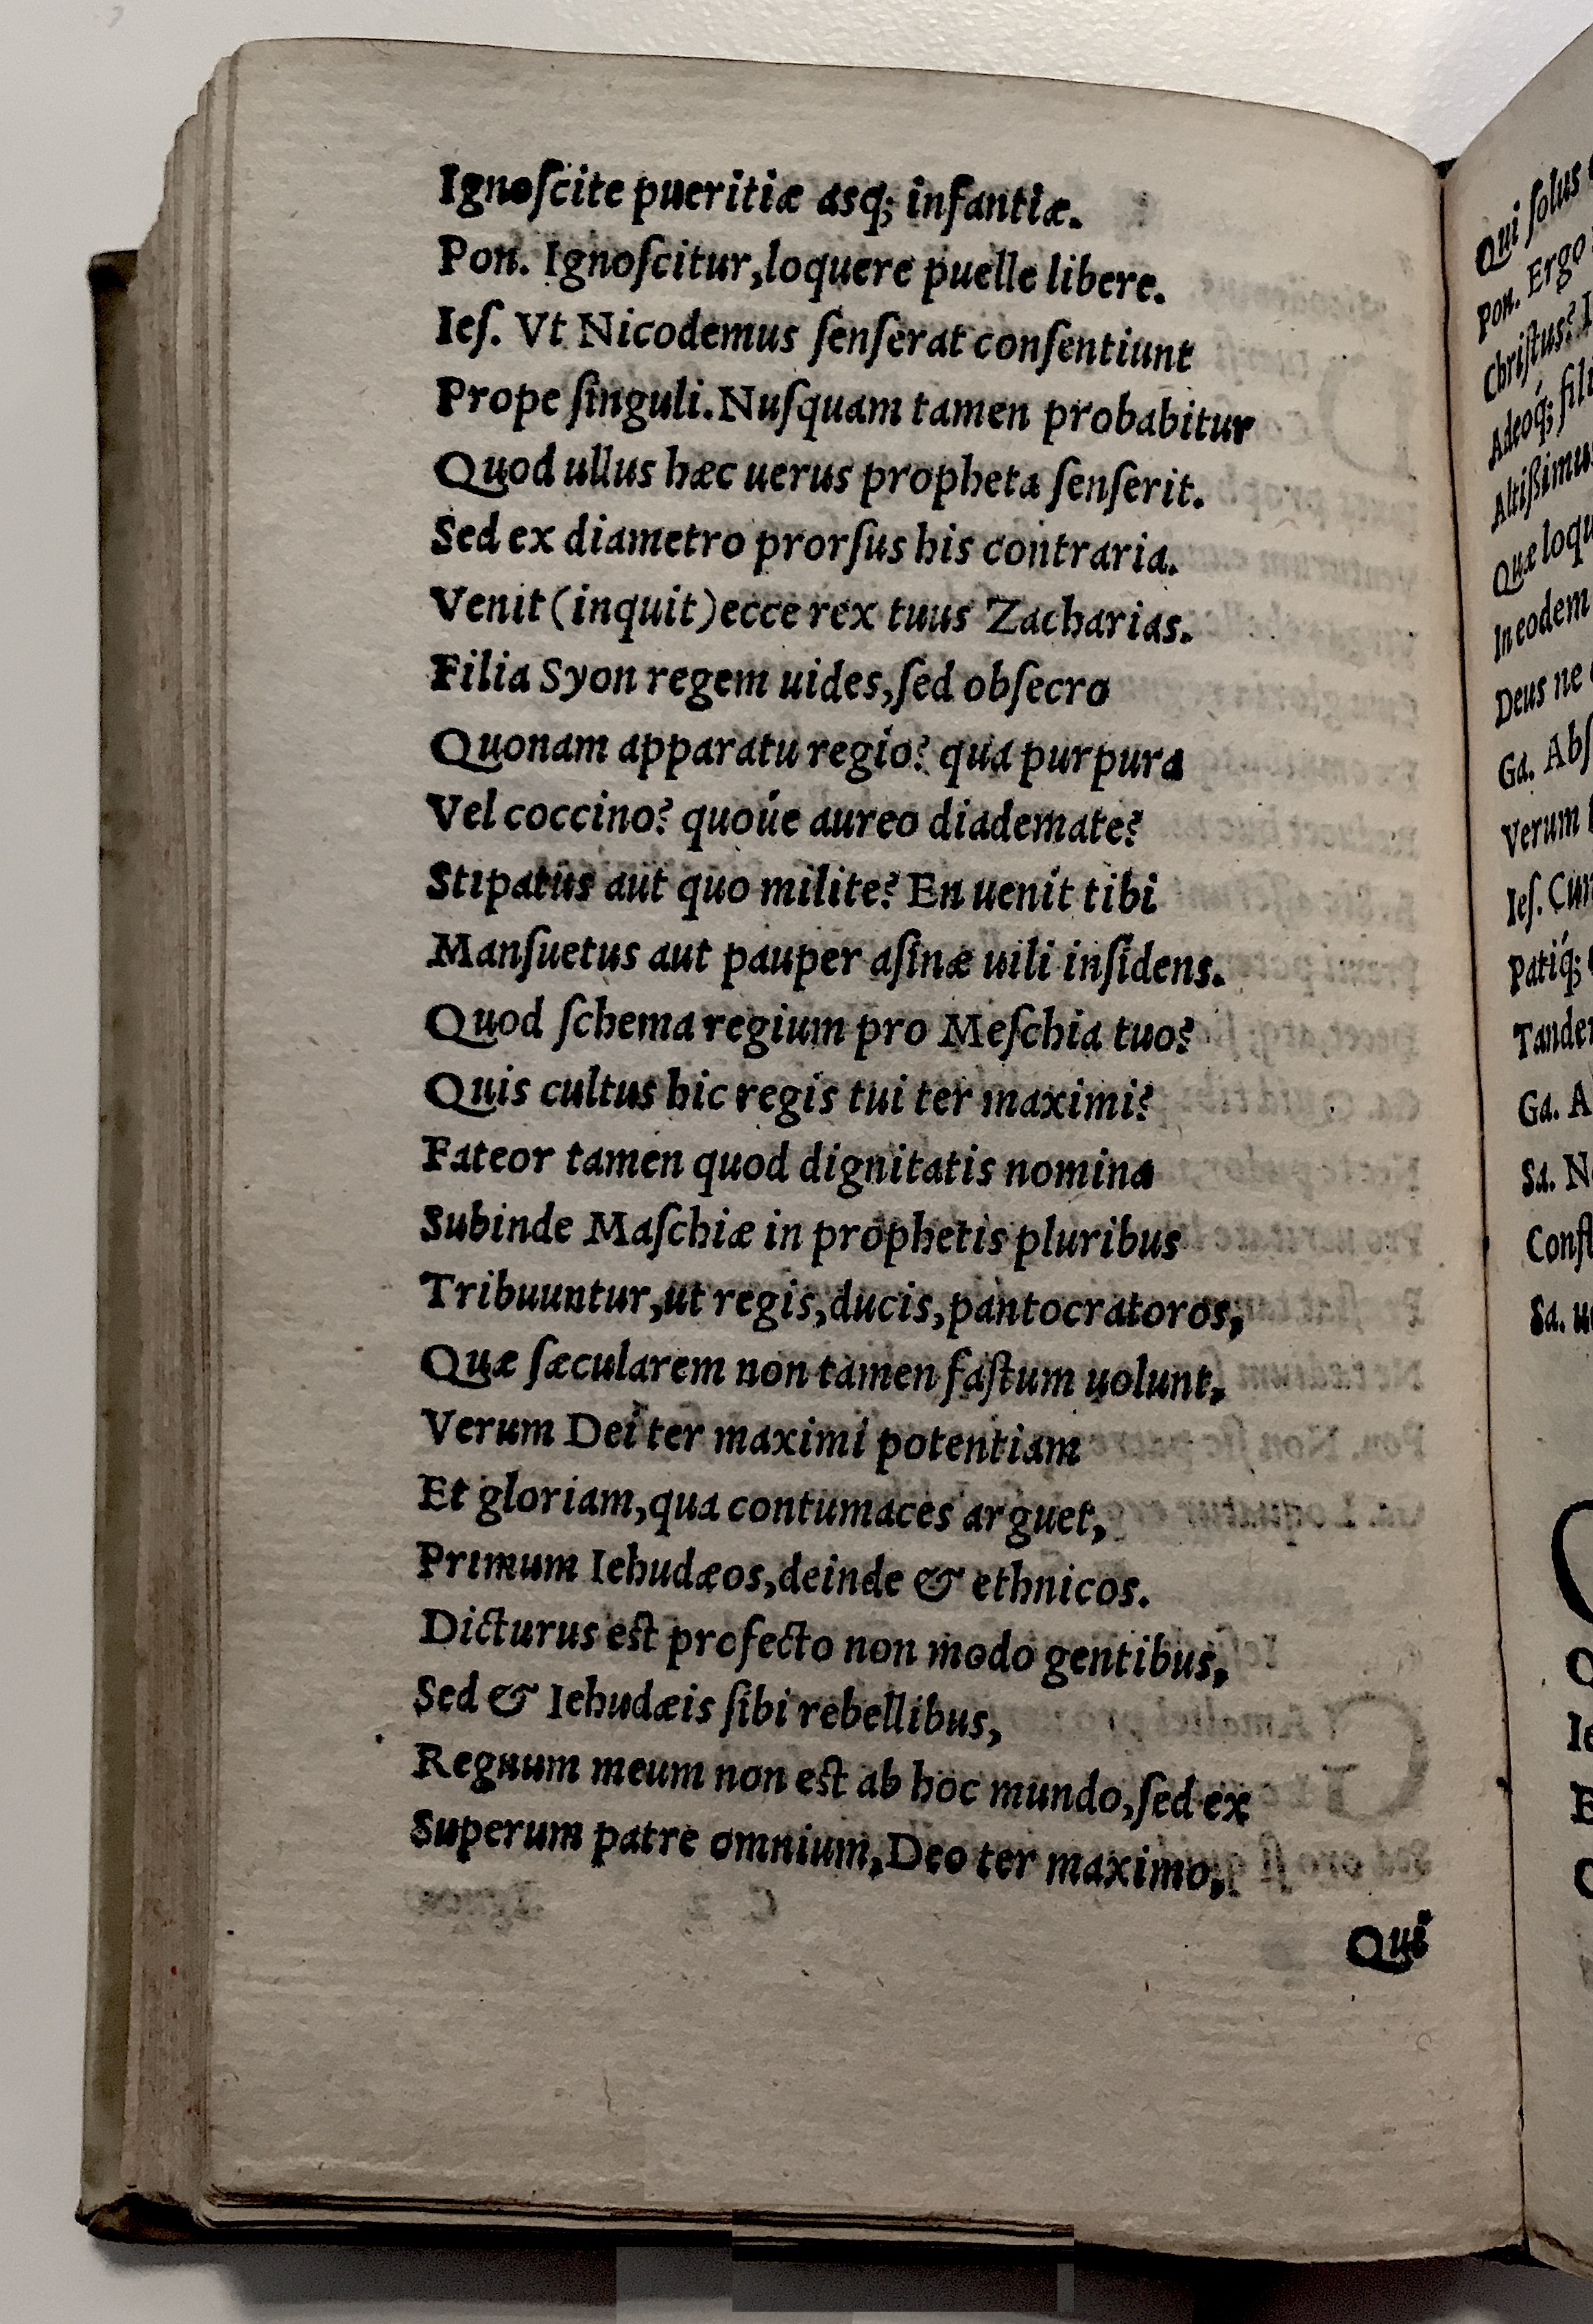 Ignoſcite pueritiæ asq; infantiæ.
Pon. Ignoſcitur,loquere puelle libere.
Ieſ. Vt Nicodemus ſenſerat conſentiunt
Prope ſinguli.Nuſquam tamen probabitur
Quod ullus hæc uerus propheta ſenſerit.
Sed ex diametro prorſus his contraria.
Venit(inquit)ecce rex tuus Zacharias.
Filia Syon regem uides,ſed obſecro
Quonam apparatu regio? qua purpura
Vel coccino? quoúe aureo diademate?
Stipatus aut quo milite? En uenit tibi
Manſuetus aut pauper aſinæ uili inſidens.
Quod ſchema regium pro Meſchia tuo?
Quis cultus hic regis tui ter maximi?
Fateor tamen quod dignitatis nomina
Subinde Maſchiæ in prophetis pluribus
Tribuuntur,ut regis,ducis,pantocratoros,
Quæ ſæcularem non tamen faſtum uolunt,
Verum Dei ter maximi potentiam
Et gloriam,qua contumaces arguet,
Primum Iehudæos,deinde & ethnicos.
Dicturus eſt profecto non modo gentibus,
Sed & Iehudæis ſibi rebellibus,
Regnum meum non eſt ab hoc mundo,ſed ex
Superum patre omnium,Deo ter maximo,
Qui
Qui ſolus
Pon. Ergo
Chriſtus?
Adeoq́;
Altißimus
Quæ
In eodem
Deus ne
Ga.
Verum
Ieſ.
Patiq́;
Ga. A
Sa.
Sa.